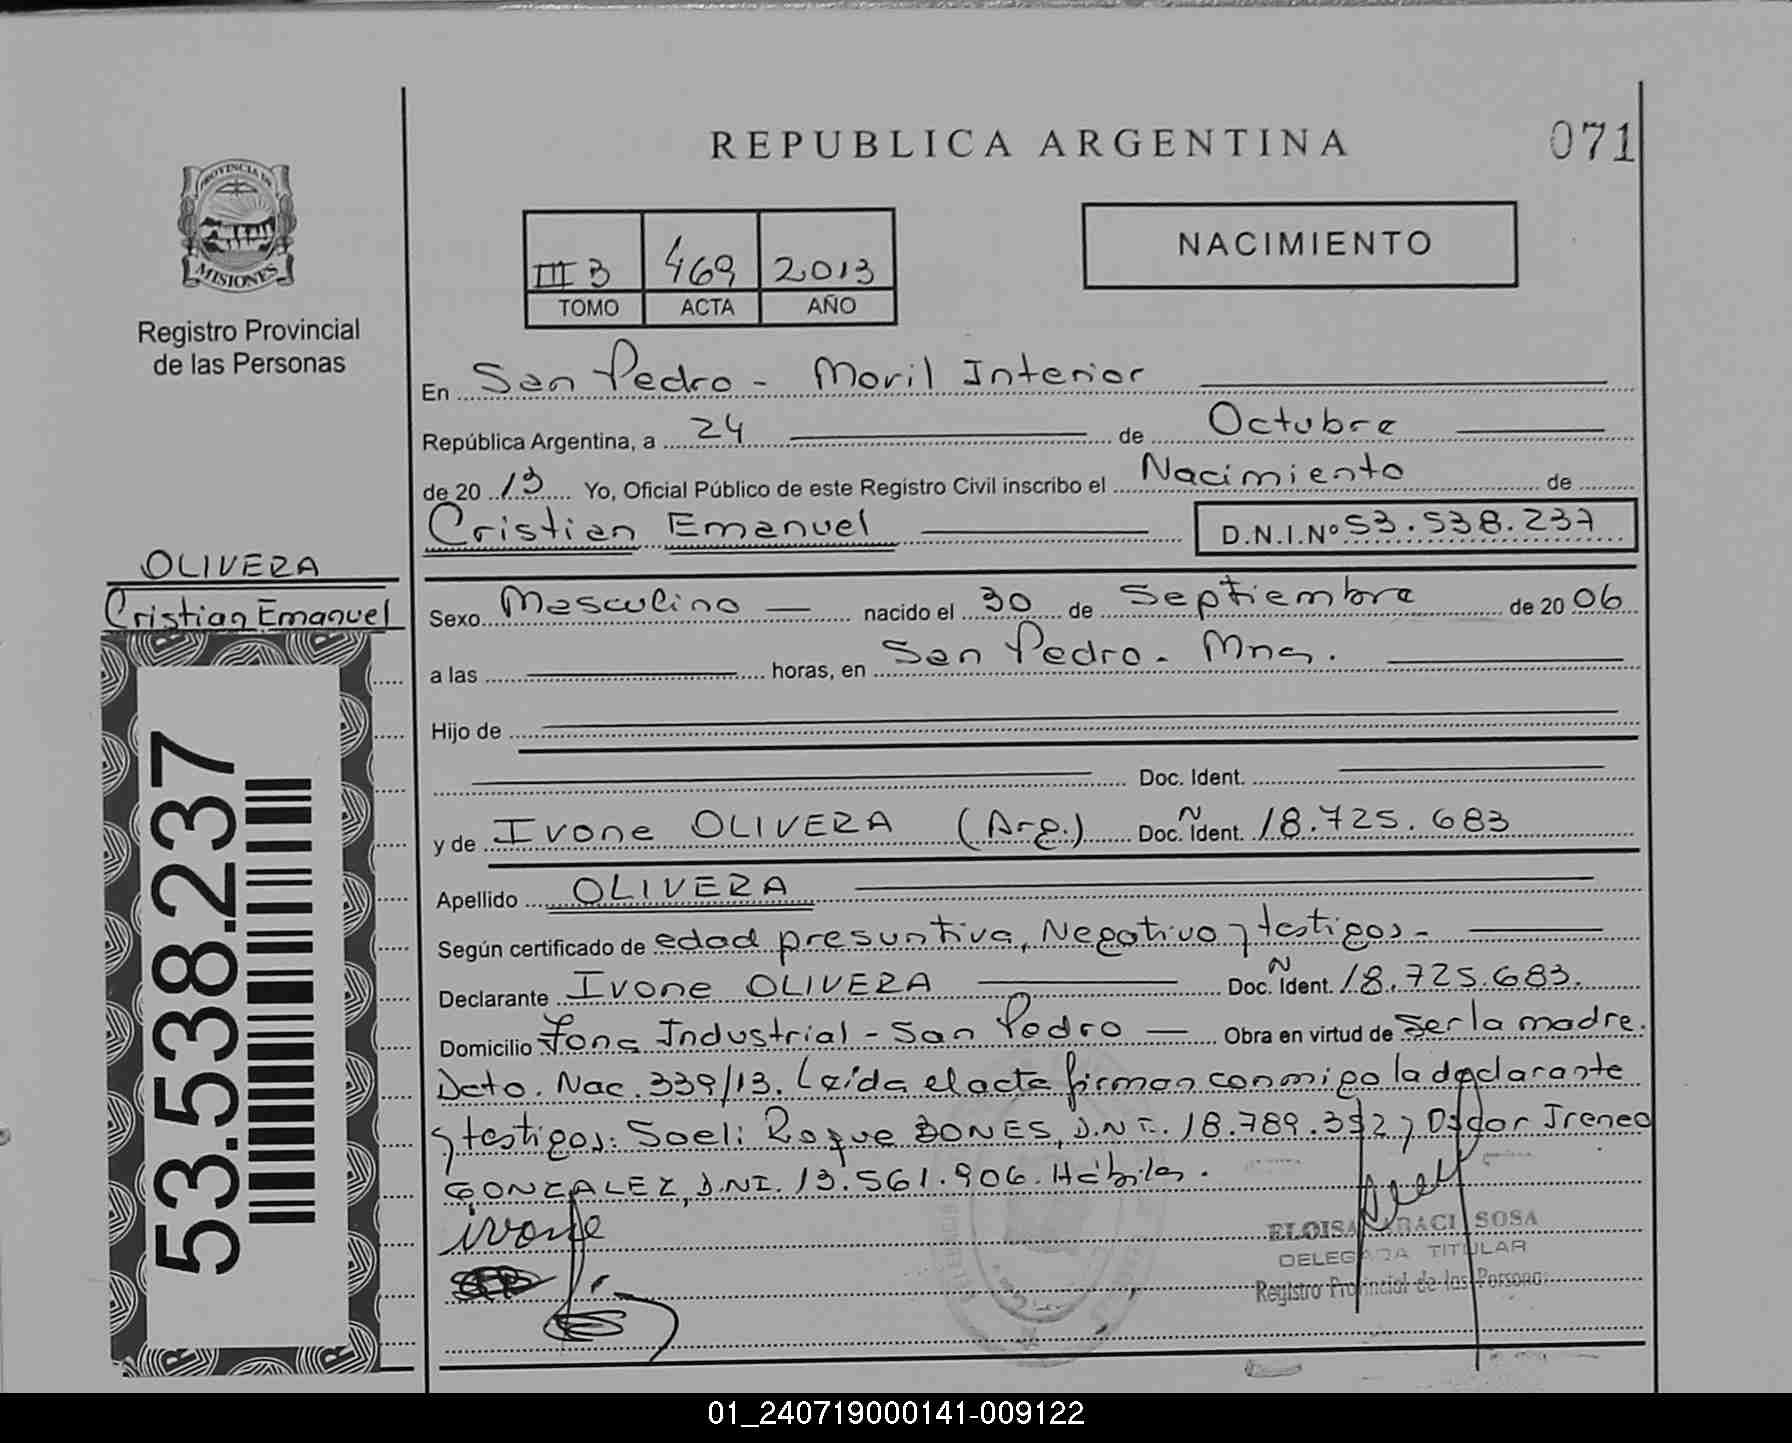 REPUBLICA ARGENTINA
071
PROVINCIA DE
MISIONES
Registro Provincial
de las Personas
III B 469 2013
TOMO ACTA AÑO
NACIMIENTO
En San Pedro - Movil Interior
República Argentina, a 24 de Octubre
de 20 13 Yo, Oficial Público de este Registro Civil inscribo el Nacimiento de
Cristian Emanuel D.N.I.Nº 53.538.237
OLIVERA
Cristian Emanuel
53.538.237
Sexo Masculino nacido el 30 de Septiembre de 20 06
a las horas, en San Pedro. Mns.
Hijo de
Doc. Ident.
y de Ivone OLIVERA (Arg.) Doc. Ident. N 18.725.683
Apellido OLIVERA
Según certificado de edad presuntiva, Negativo y testigos-
Declarante Ivone OLIVERA Doc. Ident. N 18.725.683.
Domicilio Zona Industrial - San Pedro Obra en virtud de Ser la madre.
Dcto. Nac. 339/13. Leída el acta firman conmigo la declarante
y testigos: Soeli Roque BONES, D.N.I. 18.789.392 y Oscar Ireneo
GONZALEZ, D.NI. 13.561.906. Hábiles.
ivone
ELOISA ARACI SOSA
DELEGADA TITULAR
Registro Provincial de las Personas
01_240719000141-009122